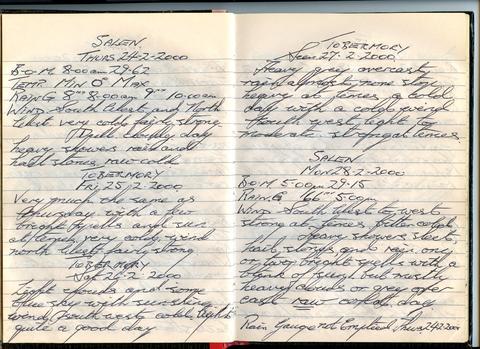 SALEN
THURS 24-2-2000
BOM 8:00am 29-62
TEMP. MIN 0° MAX
RAING 8mm 8:00am 9mm 10:00am
WIND South West and North
West very cold fairly strong
cloudy day
heavy showers rain and
hail stones, raw cold
TOBERMORY
FRI 25/2-2000
Very much the same as
thursday with a few
bright spells and sun
at times, very cold, wind
north West fairly strong
TOBERMORY
Sat 26-2-2000
Light clouds and some
blue sky with sunshine,
wind South west, cold, light
quite a good day
TOBERMORY
Sun 27-2-2000
Heavy grey overcast
rain almost none stop
heavy at times, a cold
day with a cold wind
South west light to
moderate strong at times.
SALEN
MON 28-2-2000
BOM 5:00pm 29-15
RAING 66mm 5:00pm
WIND South West to west
strong at times, bitter cold,
heavy showers sleet,
hail, snow and rain, one
or two bright spells with a
blink of sun, but mostly
heavy clouds or grey over
cast raw cold day
Rain Gauge not Emptied Thurs 24-2-2000